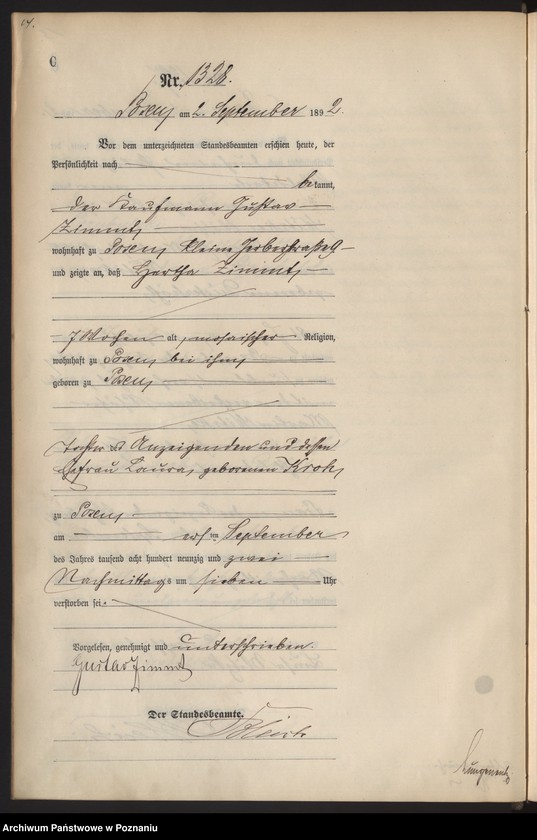 C
Nr. 1328.
Posen, am 2. September 1892.
Vor dem unterzeichneten Standesbeamten erschien heute, der
Persönlichkeit nach
bekannt,
der Kaufmann Gustav
Zimmt,
wohnhaft zu Posen, kleine Gerberstraße 9
und zeigte an, daß Hertha Zimmt,
7 Wochen alt, mosaischer Religion,
wohnhaft zu Posen bei ihm,
geboren zu Posen,
Tochter des Anzeigenden und dessen
Ehefrau Laura, geborenen Kroh,
zu Posen,
am ersten September
des Jahres tausend acht hundert neunzig und zwei
Nachmittags um sieben Uhr
verstorben sei.
Vorgelesen, genehmigt und unterschrieben.
Gustav Zimmt
Der Standesbeamte.
Archiwum Państwowe w Poznaniu